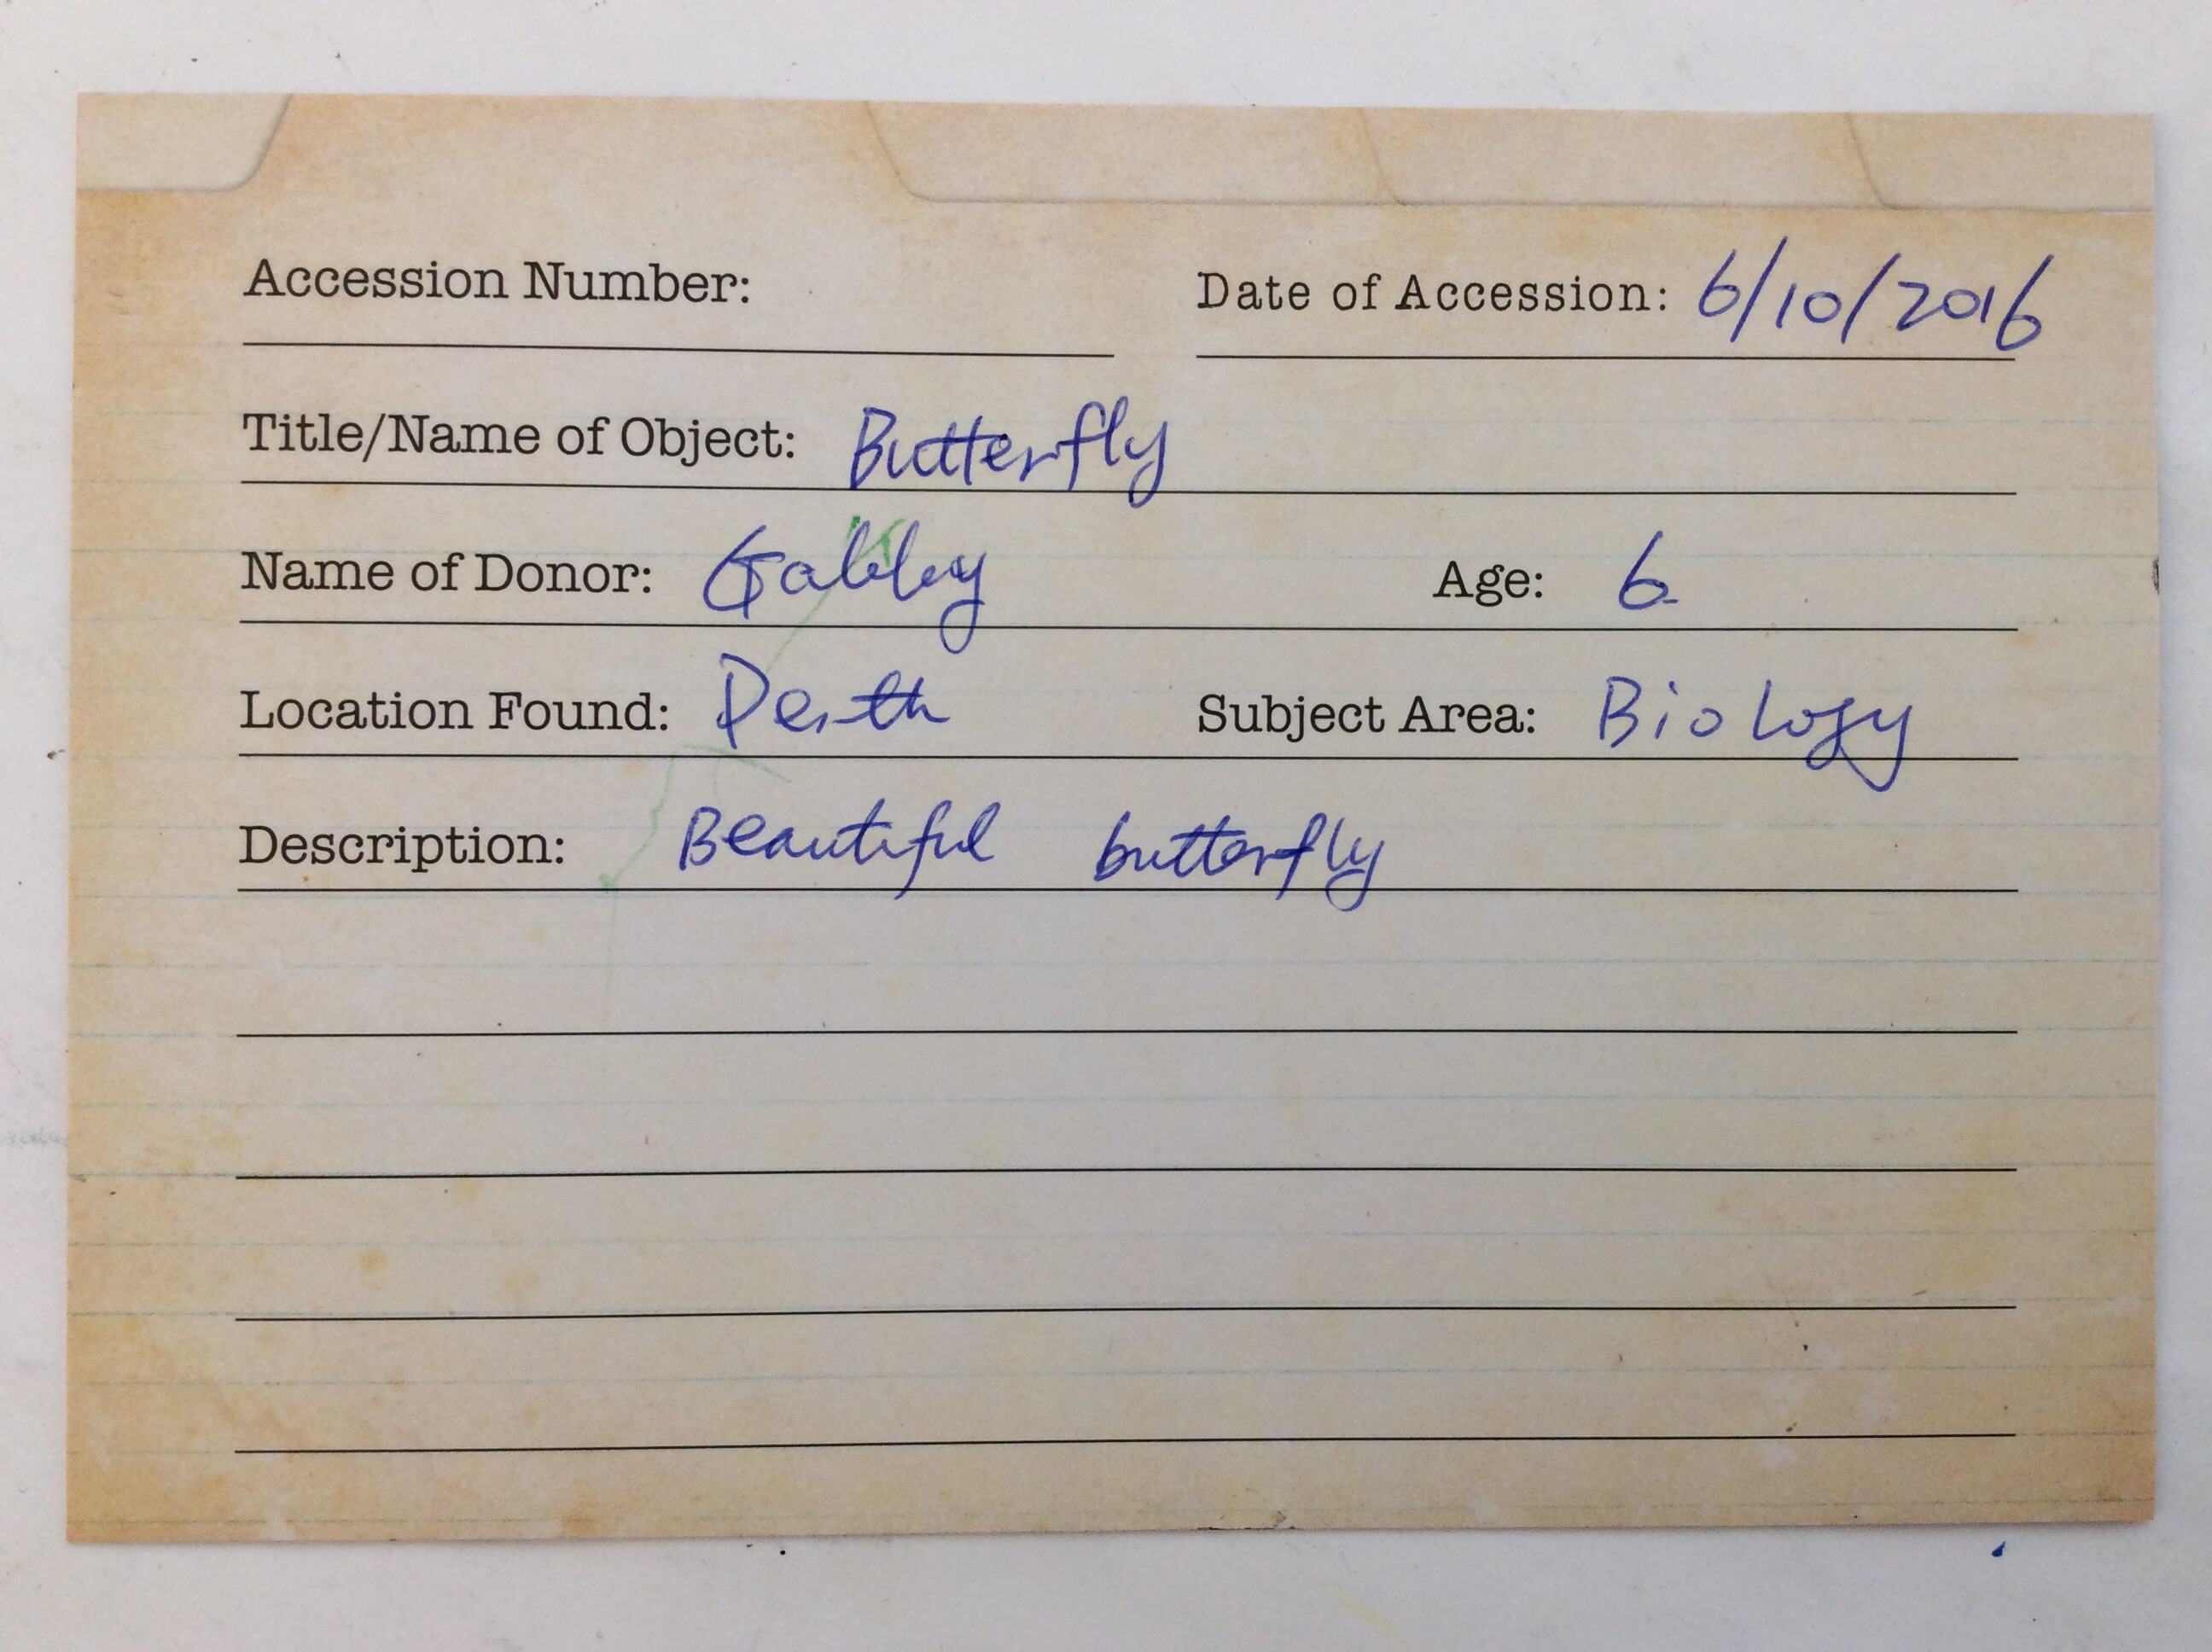 Accession Number: Date of Accession: 6/10/2016
Title/Name of Object: Butterfly
Name of Donor: Gabby Age: 6
Location Found: Perth Subject Area: Biology
Description: Beautiful butterfly